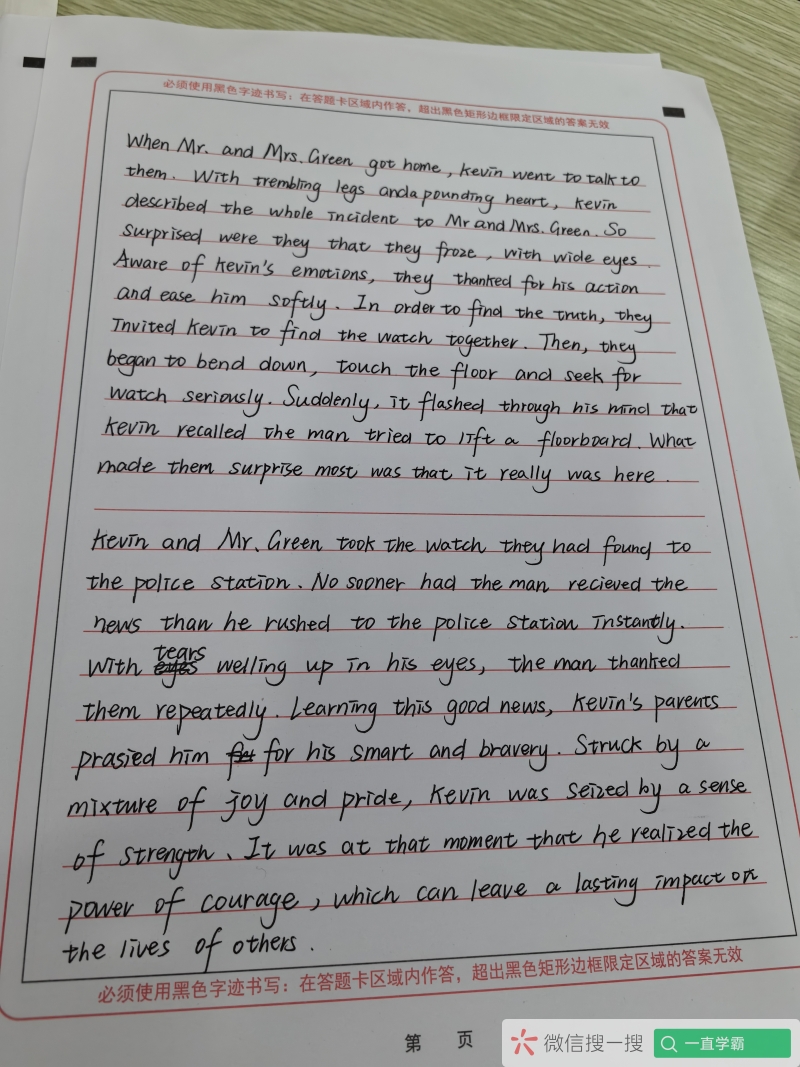 必须使用黑色字迹书写：在答题卡区域内作答，超出黑色矩形边框限定区域的答案无效
When Mr. and Mrs. Green got home, Kevin went to talk to
them. With trembling legs and a pounding heart, Kevin
described the whole incident to Mr and Mrs. Green. So
surprised were they that they froze, with wide eyes.
Aware of Kevin's emotions, they thanked for his action
and ease him softly. In order to find the truth, they
invited Kevin to find the watch together. Then, they
began to bend down, touch the floor and seek for
watch seriously. Suddenly, it flashed through his mind that
Kevin recalled the man tried to lift a floorboard. What
made them surprise most was that it really was here.
Kevin and Mr. Green took the watch they had found to
the police station. No sooner had the man recieved the
news than he rushed to the police station instantly.
With tears welling up in his eyes, the man thanked
them repeatedly. Learning this good news, Kevin's parents
prasied him for his smart and bravery. Struck by a
mixture of joy and pride, Kevin was seized by a sense
of strength. It was at that moment that he realized the
power of courage, which can leave a lasting impact on
the lives of others.
必须使用黑色字迹书写：在答题卡区域内作答，超出黑色矩形边框限定区域的答案无效
第 页
微信搜一搜
一直学霸